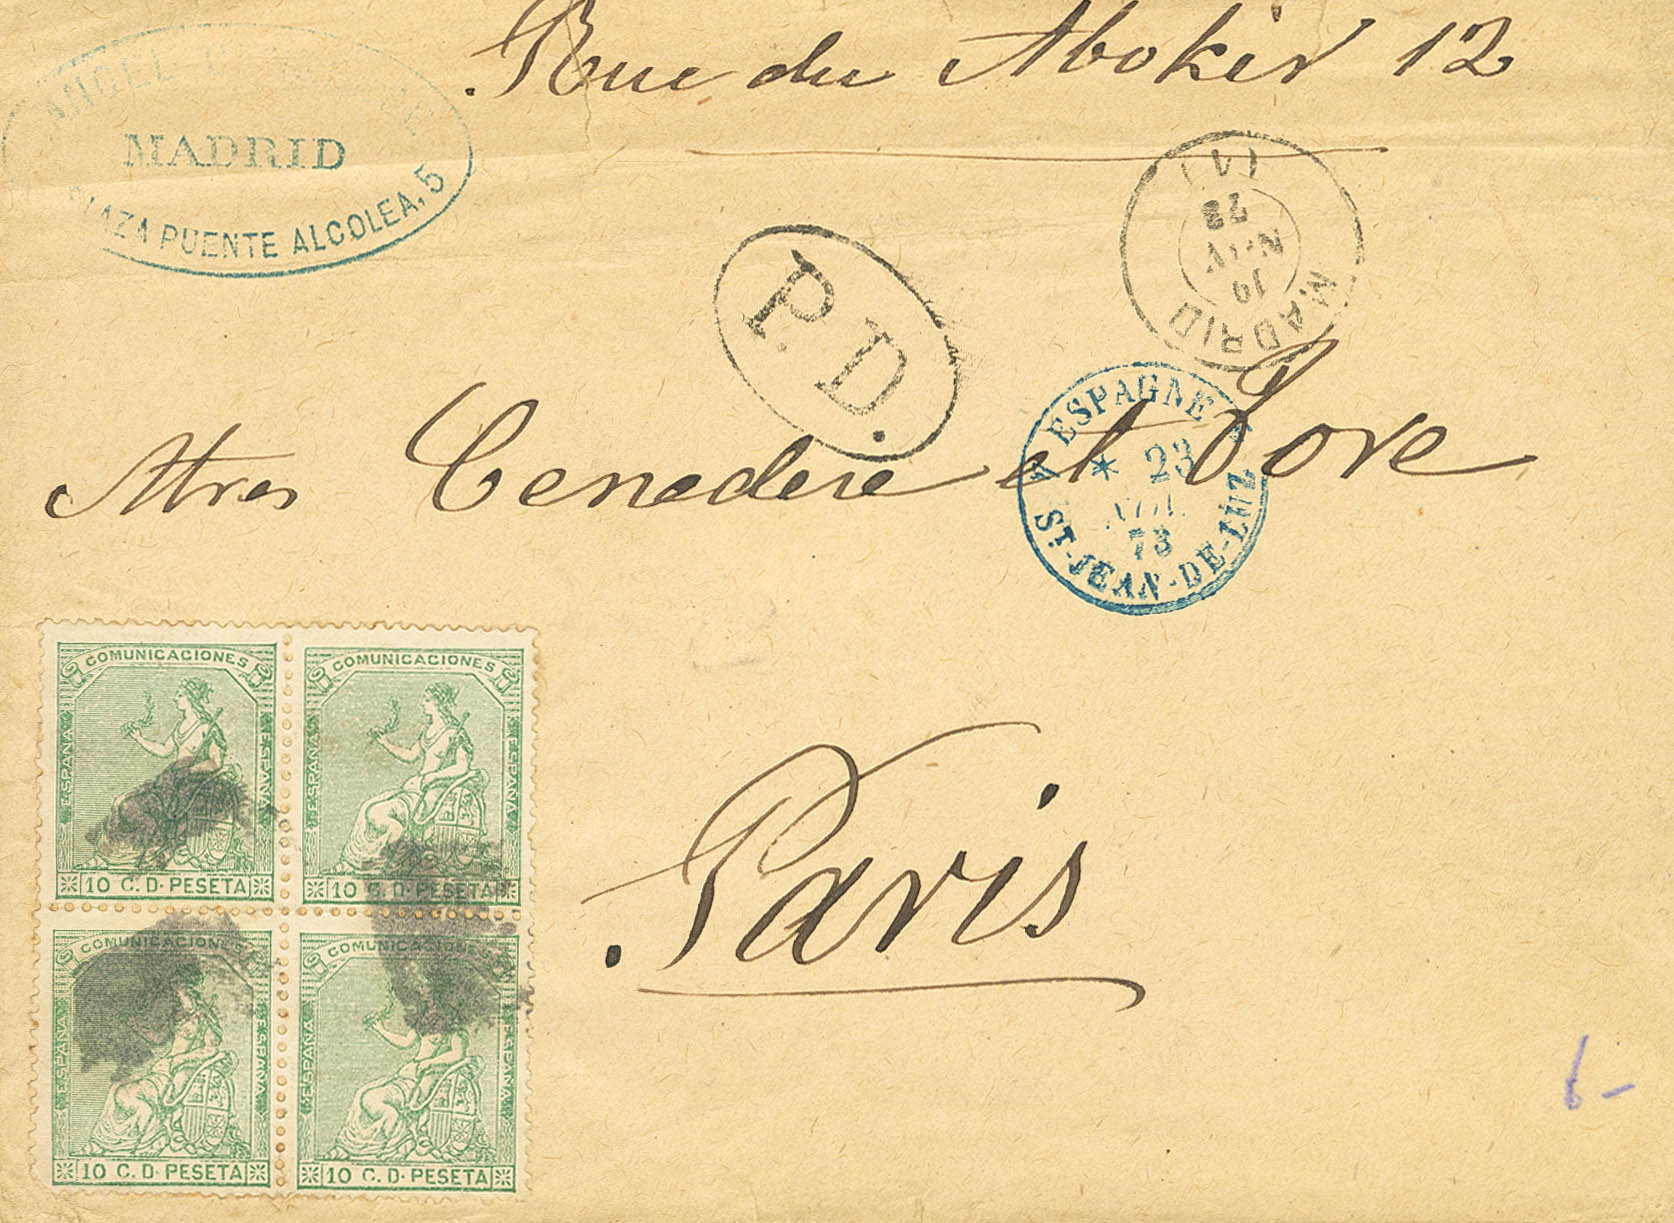 Rue du Abokir 12
ANGEL
MADRID
PLAZA PUENTE ALCOLEA, 5
P.D.
MADRID
19
73
(1)
ESPAGNE
* 23
73
ST.-JEAN-DE-LUZ
et
Paris
COMUNICACIONES
ESPAÑA
ESPAÑA
10 C. D. PESETA
COMUNICACIONES
ESPAÑA
ESPAÑA
10 C. D. PESETA
COMUNICACIONES
ESPAÑA
ESPAÑA
10 C. D. PESETA
COMUNICACIONES
ESPAÑA
ESPAÑA
10 C. D. PESETA